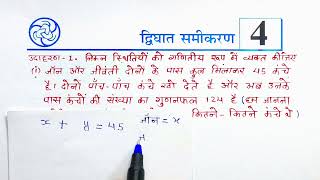 द्विघात समीकरण 4
उदाहरण-1. निम्न स्थितियों को गणितीय रूप में व्यक्त कीजिए
(i) जॉन और जीवंती दोनों के पास कुल मिलाकर 45 कंचे
हैं। दोनों पाँच-पाँच कंचे खो देते हैं और अब उनके
पास कंचों की संख्या का गुणनफल 124 है (हम जानना
कितने-कितने कंचे थे)
x + y = 45 जॉन = x